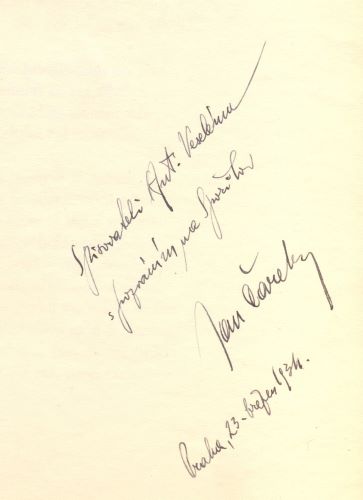 Spisovateli Ant. Veselému
s pozváním na Spořilov
Jan Čarek
Praha, 23. březen 1934.